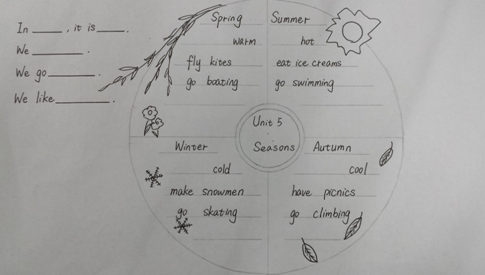 In _____, it is _____.
We _________.
We go _________.
We like _________.
Spring
warm
fly kites
go boating
Summer
hot
eat ice creams
go swimming
Unit 5
Seasons
Winter
cold
make snowmen
go skating
Autumn
cool
have picnics
go climbing